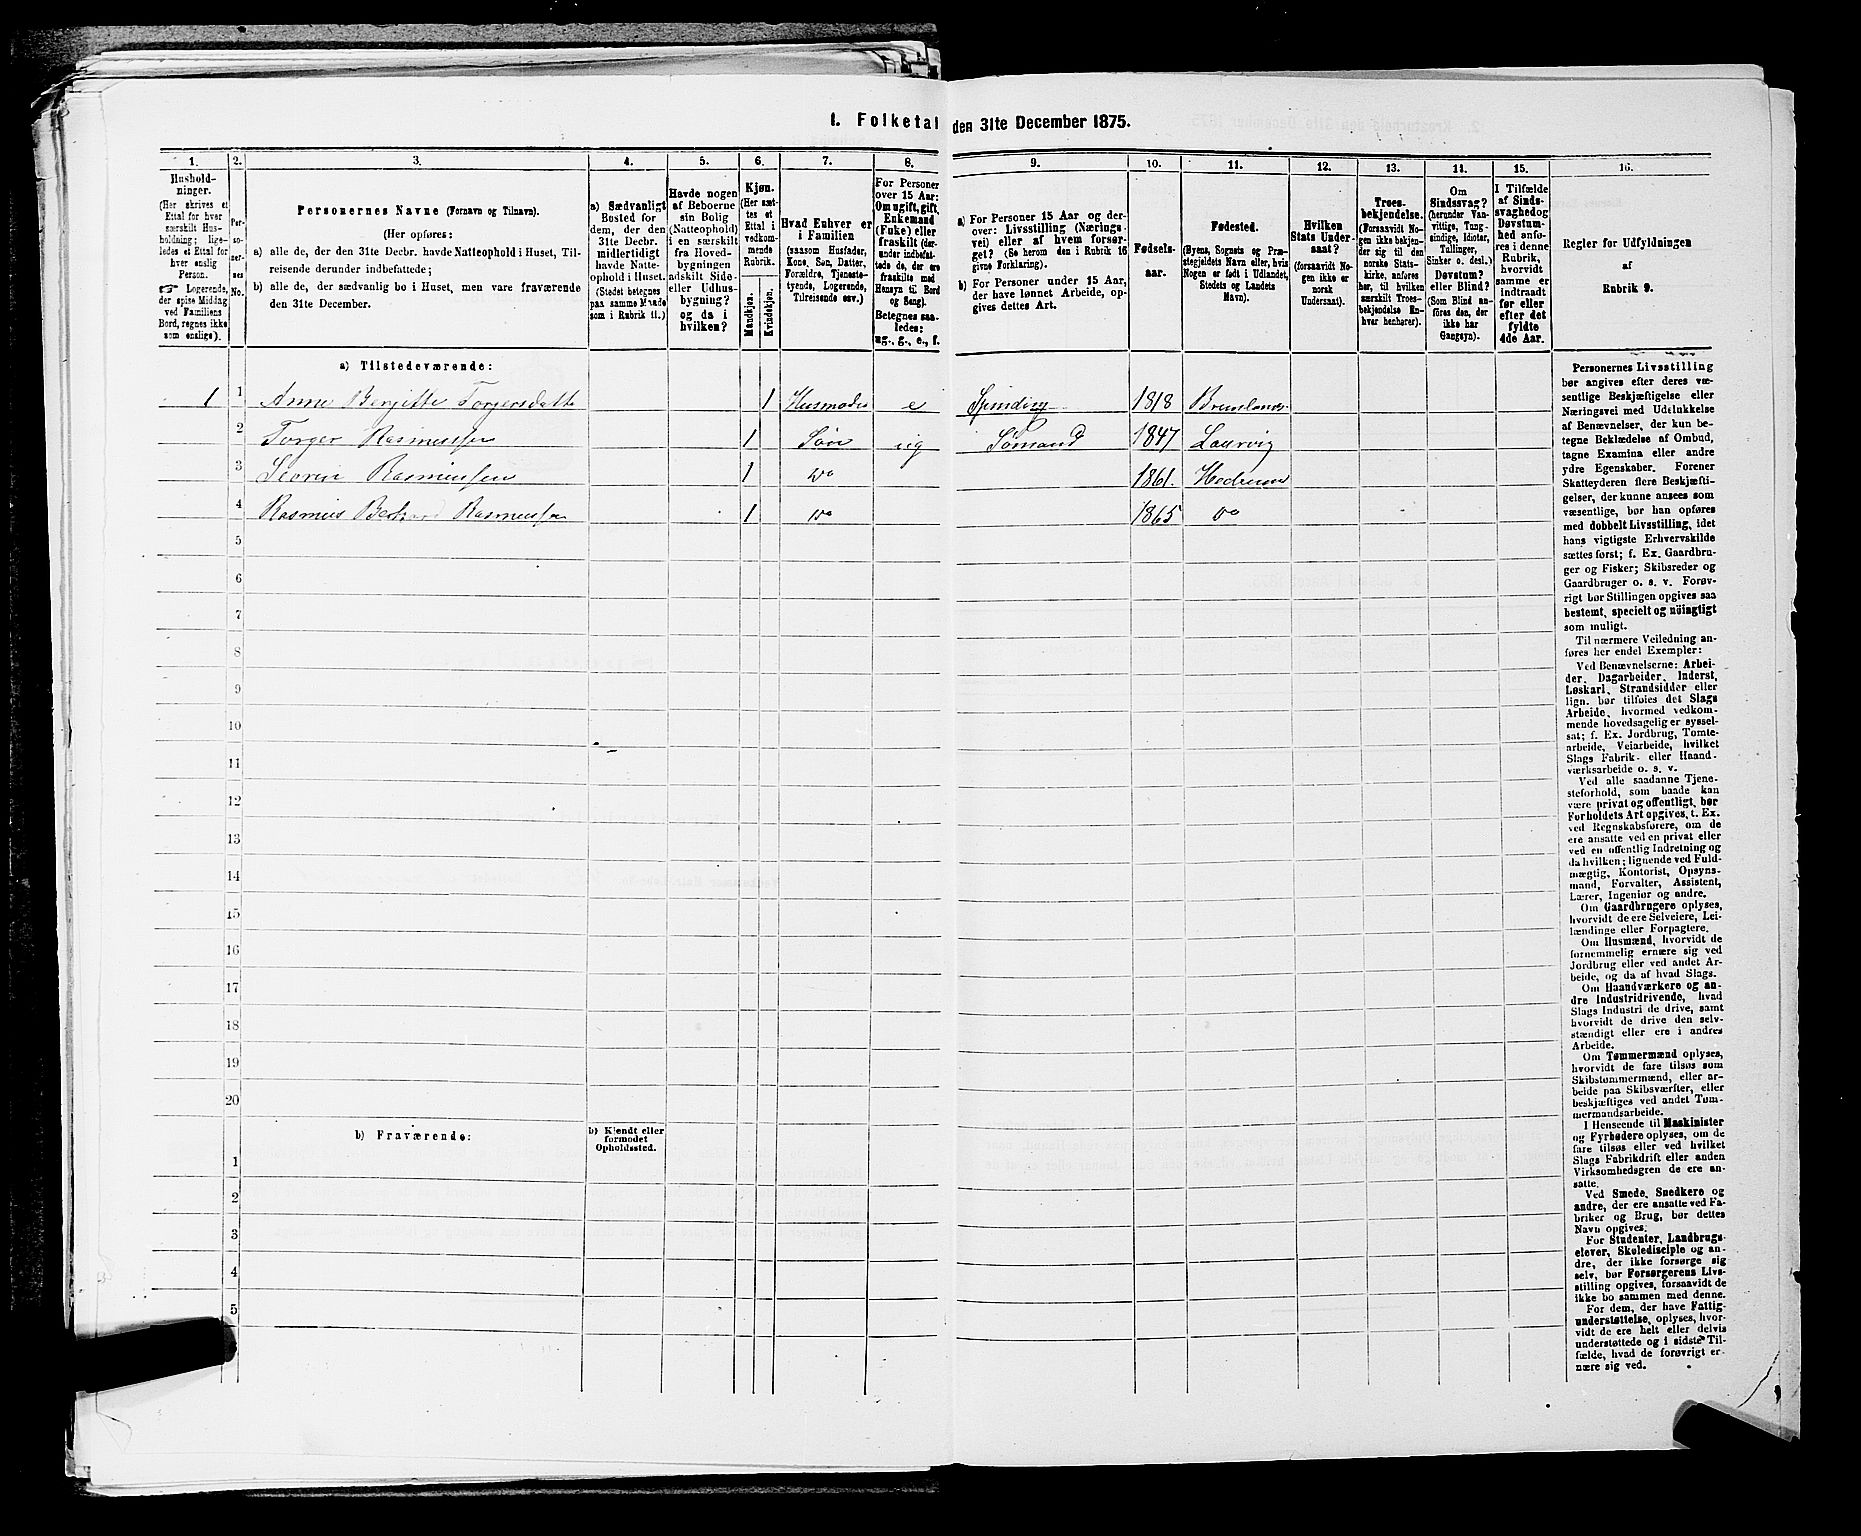 1. Folketal den 31te December 1875.
1. 2. 3. 4. 5. 6. 7. 8. 9. 10. 11. 12. 13. 14. 15. 16.
Hushold-
ninger.
(Her skrives et
Ettal for hver
særskilt Hus-
holdning; lige-
ledes et Ettal for
hver enslig
Person.
☞ Logerende,
der spise Middag
ved Familiens
Bord, regnes ikke
som enslige).
Per-
so-
ner-
nes
No.
Personernes Navne (Fornavn og Tilnavn).
(Her opføres:
a) alle de, der den 31te Decbr. havde Natteophold i Huset, Til-
reisende derunder indbefattede;
b) alle de, der sædvanlig bo i Huset, men vare fraværende
den 31te December.
a) Sædvanligt
Bosted for
dem, der den
31te Decbr.
midlertidigt
havde Natte-
ophold i Huset.
(Stedet betegnes
paa samme Maade
som i Rubrik 11.)
Havde nogen
af Beboerne
sin Bolig
(Natteophold)
i en særskilt
fra Hoved-
bygningen
adskilt Side-
eller Udhus-
bygning?
og da i
hvilken?
Kjøn.
(Her sæt-
tes et
Ettal i
vedkom-
mende
Rubrik.
Mandkjøn.
Kvindekjøn.
Hvad Enhver er
i Familien
(saasom Husfader,
Kone, Søn, Datter,
Forældre, Tjeneste-
tyende, Logerende,
Tilreisende osv.)
For Personer
over 15 Aar:
Om ugift, gift,
Enkemand
(Fuke) eller
fraskilt (der-
under indbefat-
tede de, der ere
fraskilte med
Hensyn til Bord
og Seng).
Betegnes saa-
ledes:
ug., g., e., f.
a) For Personer 15 Aar og der-
over: Livsstilling (Nærings-
vei) eller af hvem forsør-
get? (Se herom den i Rubrik 16
givne Forklaring).
b) For Personer under 15 Aar,
der have lønnet Arbeide, op-
gives dettes Art.
Fødsels-
aar.
Fødested.
(Byens, Sognets og Præ-
stegjeldets Navn eller, hvis
Nogen er født i Udlandet,
Stedets og Landets
Navn).
Hvilken
Stats Under-
saat?
(forsaavidt No-
gen ikke er
norsk
Undersaat).
Troes-
bekjendelse.
(Forsaavidt No-
gen ikke bekjen-
der sig til den
norske Stats-
kirke, anføres
her, til hvilken
særskilt Troes-
bekjendelse En-
hver henhører).
Om
Sindssvag?
(herunder Van-
vittige, Tung-
sindige, Idioter,
Tullinger,
Sinker o. desl.)
Døvstum?
eller Blind?
(Som Blind an-
føres den, der
ikke har
Gangsyn).
I Tilfælde
af Sinds-
svaghed og
Døvstum-
hed anfø-
res i denne
Rubrik,
hvorvidt
samme er
indtraadt
før eller
efter det
fyldte
4de Aar.
Regler for Udfyldningen
af
Rubrik 9.
a) Tilstedeværende:
1 1 Anne Bergitte Torgersdatte 1 Husmoder e Spinding 1818 Brunlanes
2 Torger Rasmussen 1 Søn ug Sømand 1847 Laurvig
3 Rasmussen 1 do 1861. Hedrum
4 Rasmus Rasmussen 1 do 1865 do
5
6
7
8
9
10
11
12
13
14
15
16
17
18
19
20
b) Fraværende:
b) Kjendt eller
formodet
Opholdssted.
1
2
3
4
5
Personernes Livsstilling
bør angives efter deres væ-
sentlige Beskjæftigelse eller
Næringsvei med Udelukkelse
af Benævnelser, der kun be-
tegne Beklædelse af Ombud,
tagne Examina eller andre
ydre Egenskaber. Forener
Skatteyderen flere Beskjæfti-
gelser, der kunne ansees som
væsentlige, bør han opføres
med dobbelt Livsstilling, idet
hans vigtigste Erhvervskilde
sættes først; f. Ex. Gaardbru-
ger og Fisker; Skibsreder og
Gaardbruger o. s. v. Forøv-
rigt bør Stillingen opgives saa
bestemt, specielt og nöiagtigt
som muligt.
Til nærmere Veiledning an-
føres her endel Exempler:
Ved Benævnelserne: Arbei-
der, Dagarbeider, Inderst,
Løskarl, Strandsidder eller
lign. bør tilføies det Slags
Arbeide, hvormed vedkom-
mende hovedsagelig er syssel-
sat; f. Ex. Jordbrug, Tomte-
arbeide, Veiarbeide, hvilket
Slags Fabrik- eller Haand-
værksarbeide o. s. v.
Ved alle saadanne Tjene-
steforhold, som baade kan
være privat og offentligt, bør
Forholdets Art opgives, t. Ex.
ved Regnskabsførere, om de
ere ansatte ved en privat eller
ved en offentlig Indretning og
da hvilken; lignende ved Fuld-
mægtig, Kontorist, Opsyns-
mand, Forvalter, Assistent,
Lærer, Ingeniør og andre.
Om Gaardbrugere oplyses,
hvorvidt de ere Selveiere, Lei-
lændinge eller Forpagtere.
Om Husmænd, hvorvidt de
fornemmelig ernære sig ved
Jordbrug eller ved andet Ar-
beide, og da af hvad Slags.
Om Haandværkere og an-
dre Industridrivende, hvad
Slags Industri de drive, samt
hvorvidt de drive den selv-
stændigt eller ere i andres
Arbeide.
Om Tømmermænd oplyses,
hvorvidt de fare tilsøs som
Skibstømmermænd, eller ar-
beide paa Skibsværfter, eller
beskjæftiges ved andet Tøm-
mermandsarbeide.
I Henseende til Maskinister
og Fyrbødere oplyses, om de
fare tilsøs eller ved hvilket
Slags Fabrikdrift eller anden
Virksomhedsgren de ere an-
satte.
Ved Smede, Snedkere og
andre, der ere ansatte ved Fa-
briker og Brug, bør dettes
Navn opgives.
For Studenter, Landbrugs-
elever, Skoledisciple og an-
dre, der ikke forsørge sig
selv, bør Forsørgerens Livs-
stilling opgives, forsaavidt de
ikke bo sammen med denne.
For dem, der have Fattig-
understøttelse, oplyses, hvor-
vidt de ere helt eller delvis
understøttede og i sidste Til-
fælde, hvad de forøvrigt er-
nære sig ved.